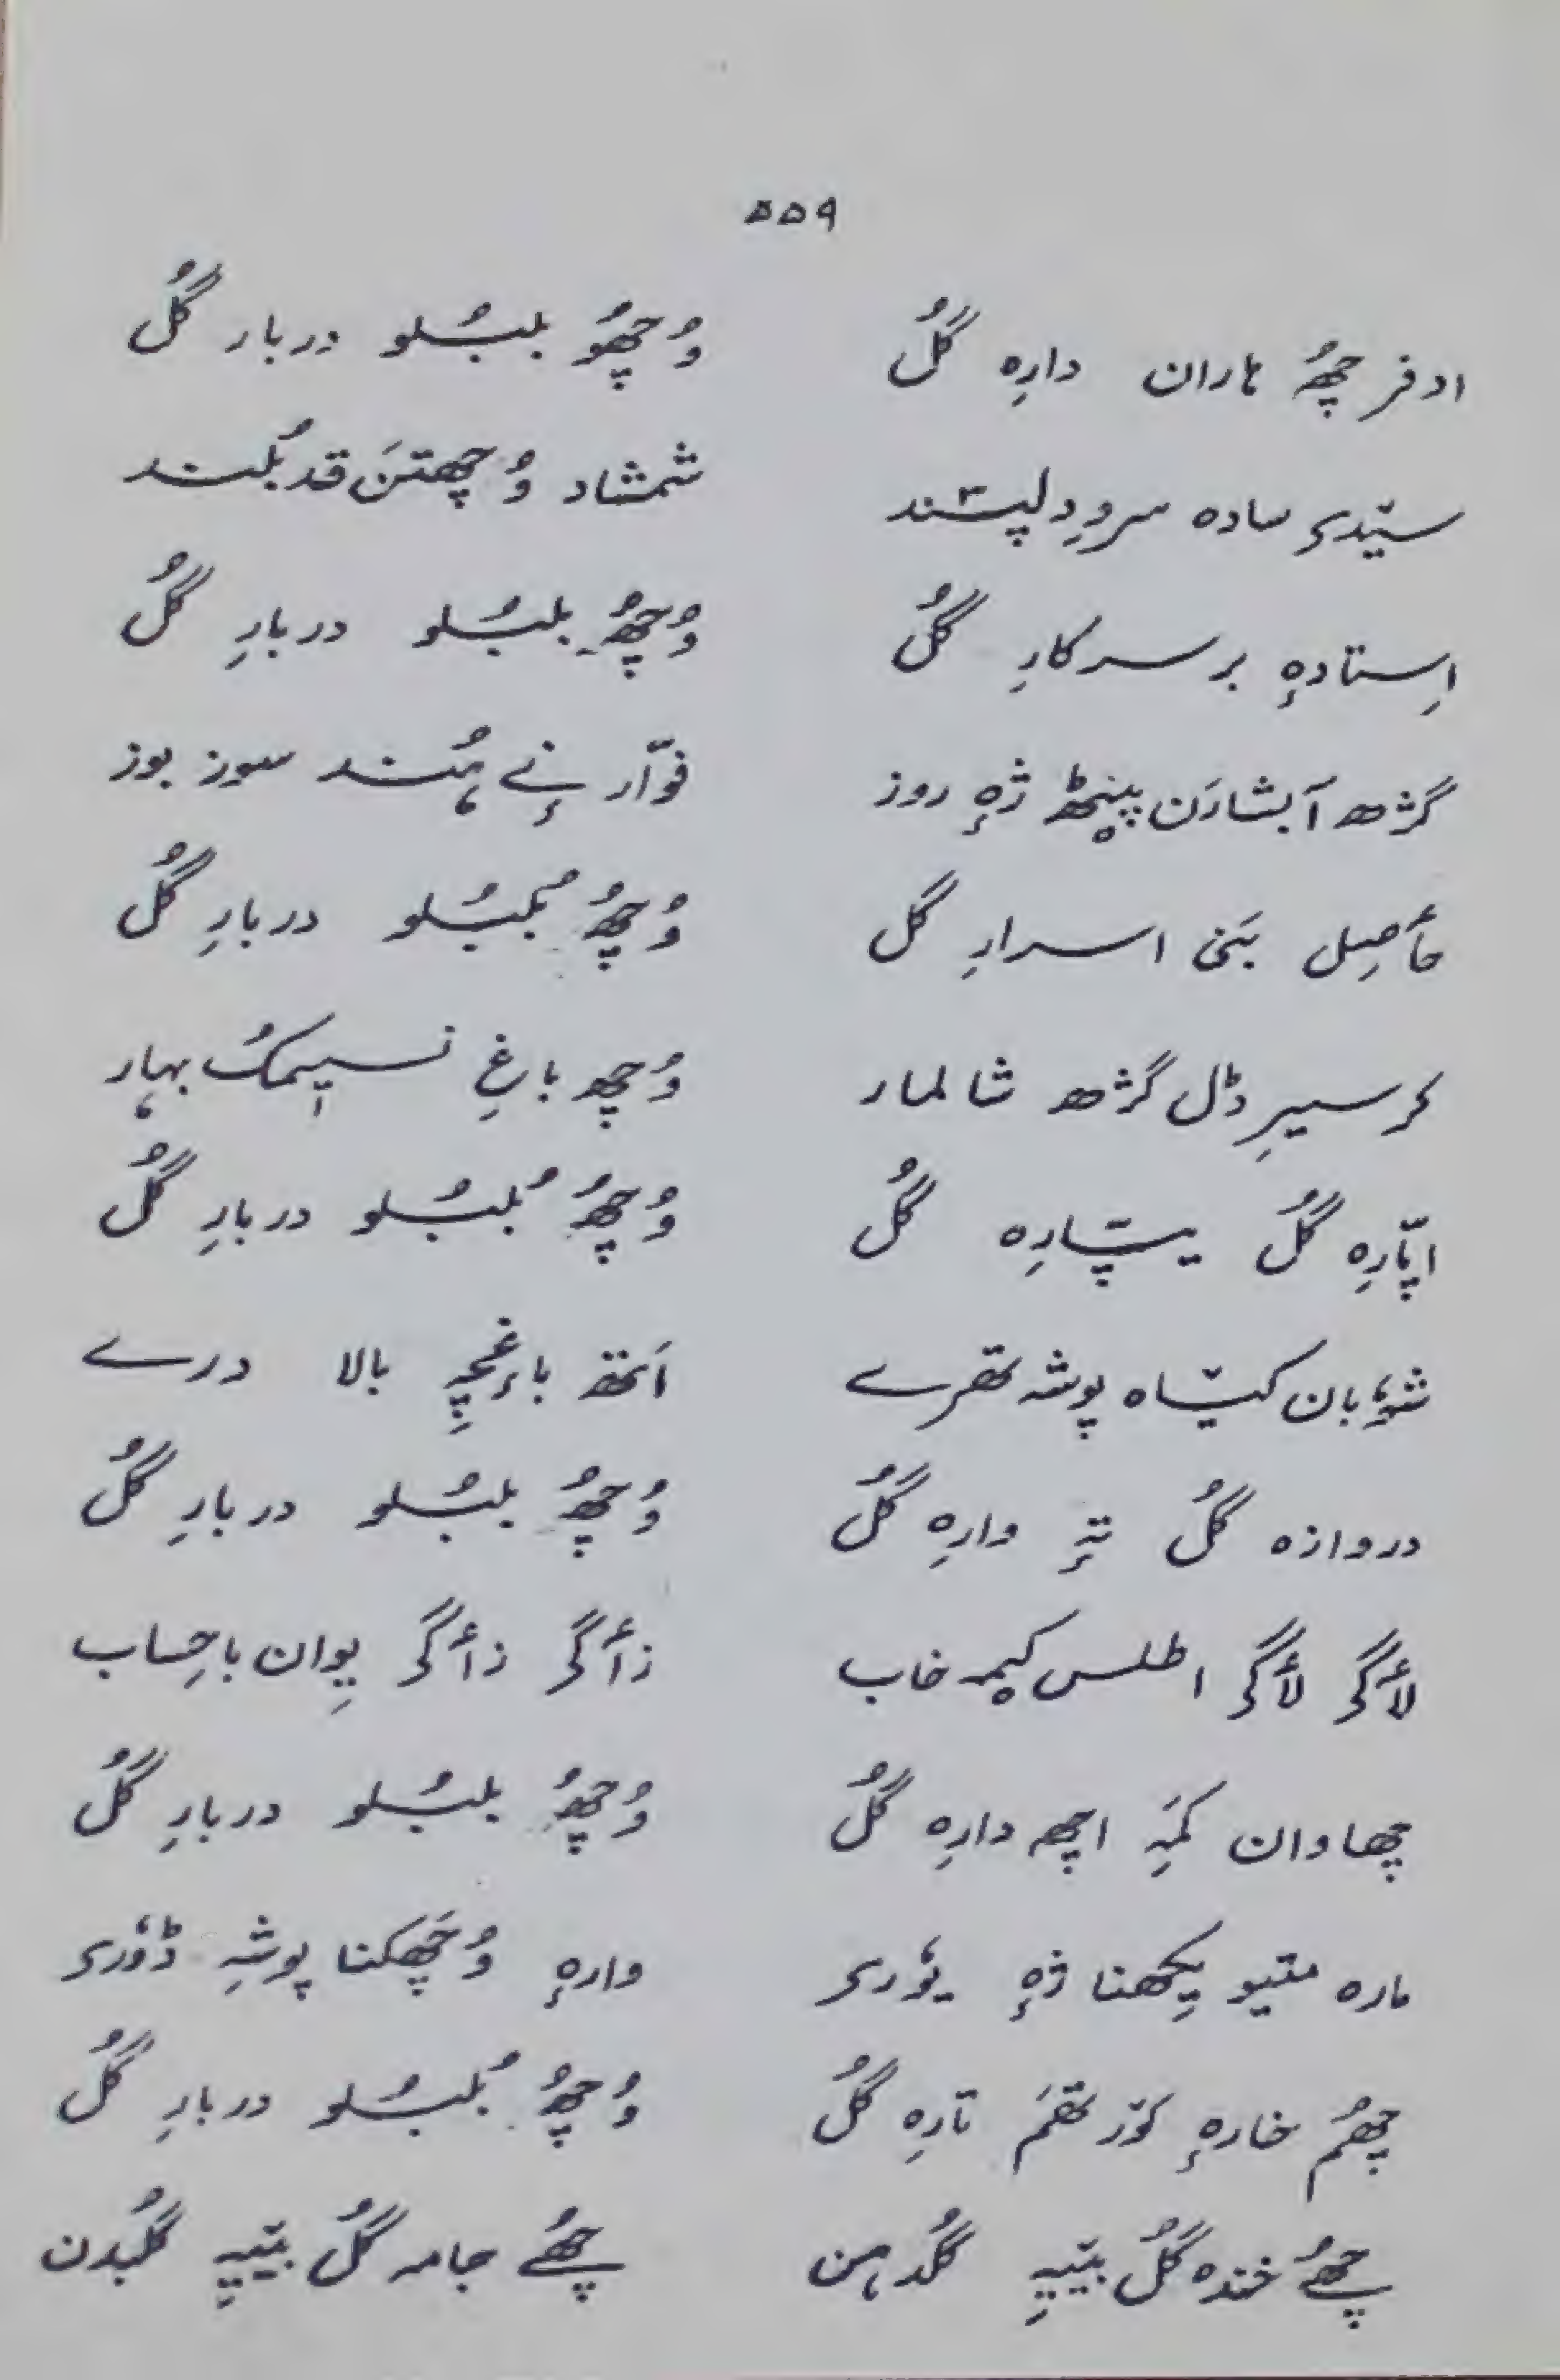 ۵۵۹
ادفر چھُ ہاران دارِہ گُل وُچھُو بلبُلو دربار گُل
سیّدی سادہ سروِ دلپسند شمشاد وُچھتنَ قد بُلند
اِستادہٕ بر سرکارِ گُل وُچھُ بلبُلو دربارِ گُل
گژھ آبشارَن پیٚٹھ ژٕہ روز فوّار نے ہٕند سوز بوز
حٲصِل بَنی اسرارِ گل وُچھُ بُلبُلو دربارِ گُل
کر سیرِ ڈل گژھ شالمار وُچھ باغِ نسیمُک بہار
اپٲرِہ گُل یپٲرِہ گُل وُچھُ بُلبُلو دربارِ گُل
شوٗبان کیٚاہ پوشہ تھرے اَتھ باغچہِ بالا درے
دروازہ گُل تہٕ وارِہ گُل وُچھُ بلبُلو دربارِ گُل
لٲگی لٲگی اطلس کیمہ خاب زٲگی زٲگی یِوان باحِساب
چھاوان کَمہِ اچھ دارِہ گُل وُچھُ بلبُلو دربارِ گُل
مارہ متیو یِکھنا ژٕہ یوٗری وارہٕ وُچھکنا پوشہِ ڈوٗری
چھُم خارہٕ کوٚرتھَم تارِہ گُل وُچھُ بُلبُلو دربارِ گُل
چھُے خندہ گُل بیٚیہِ گُلدہن چھُے جامہ گُل بیٚیہِ گُلبدن